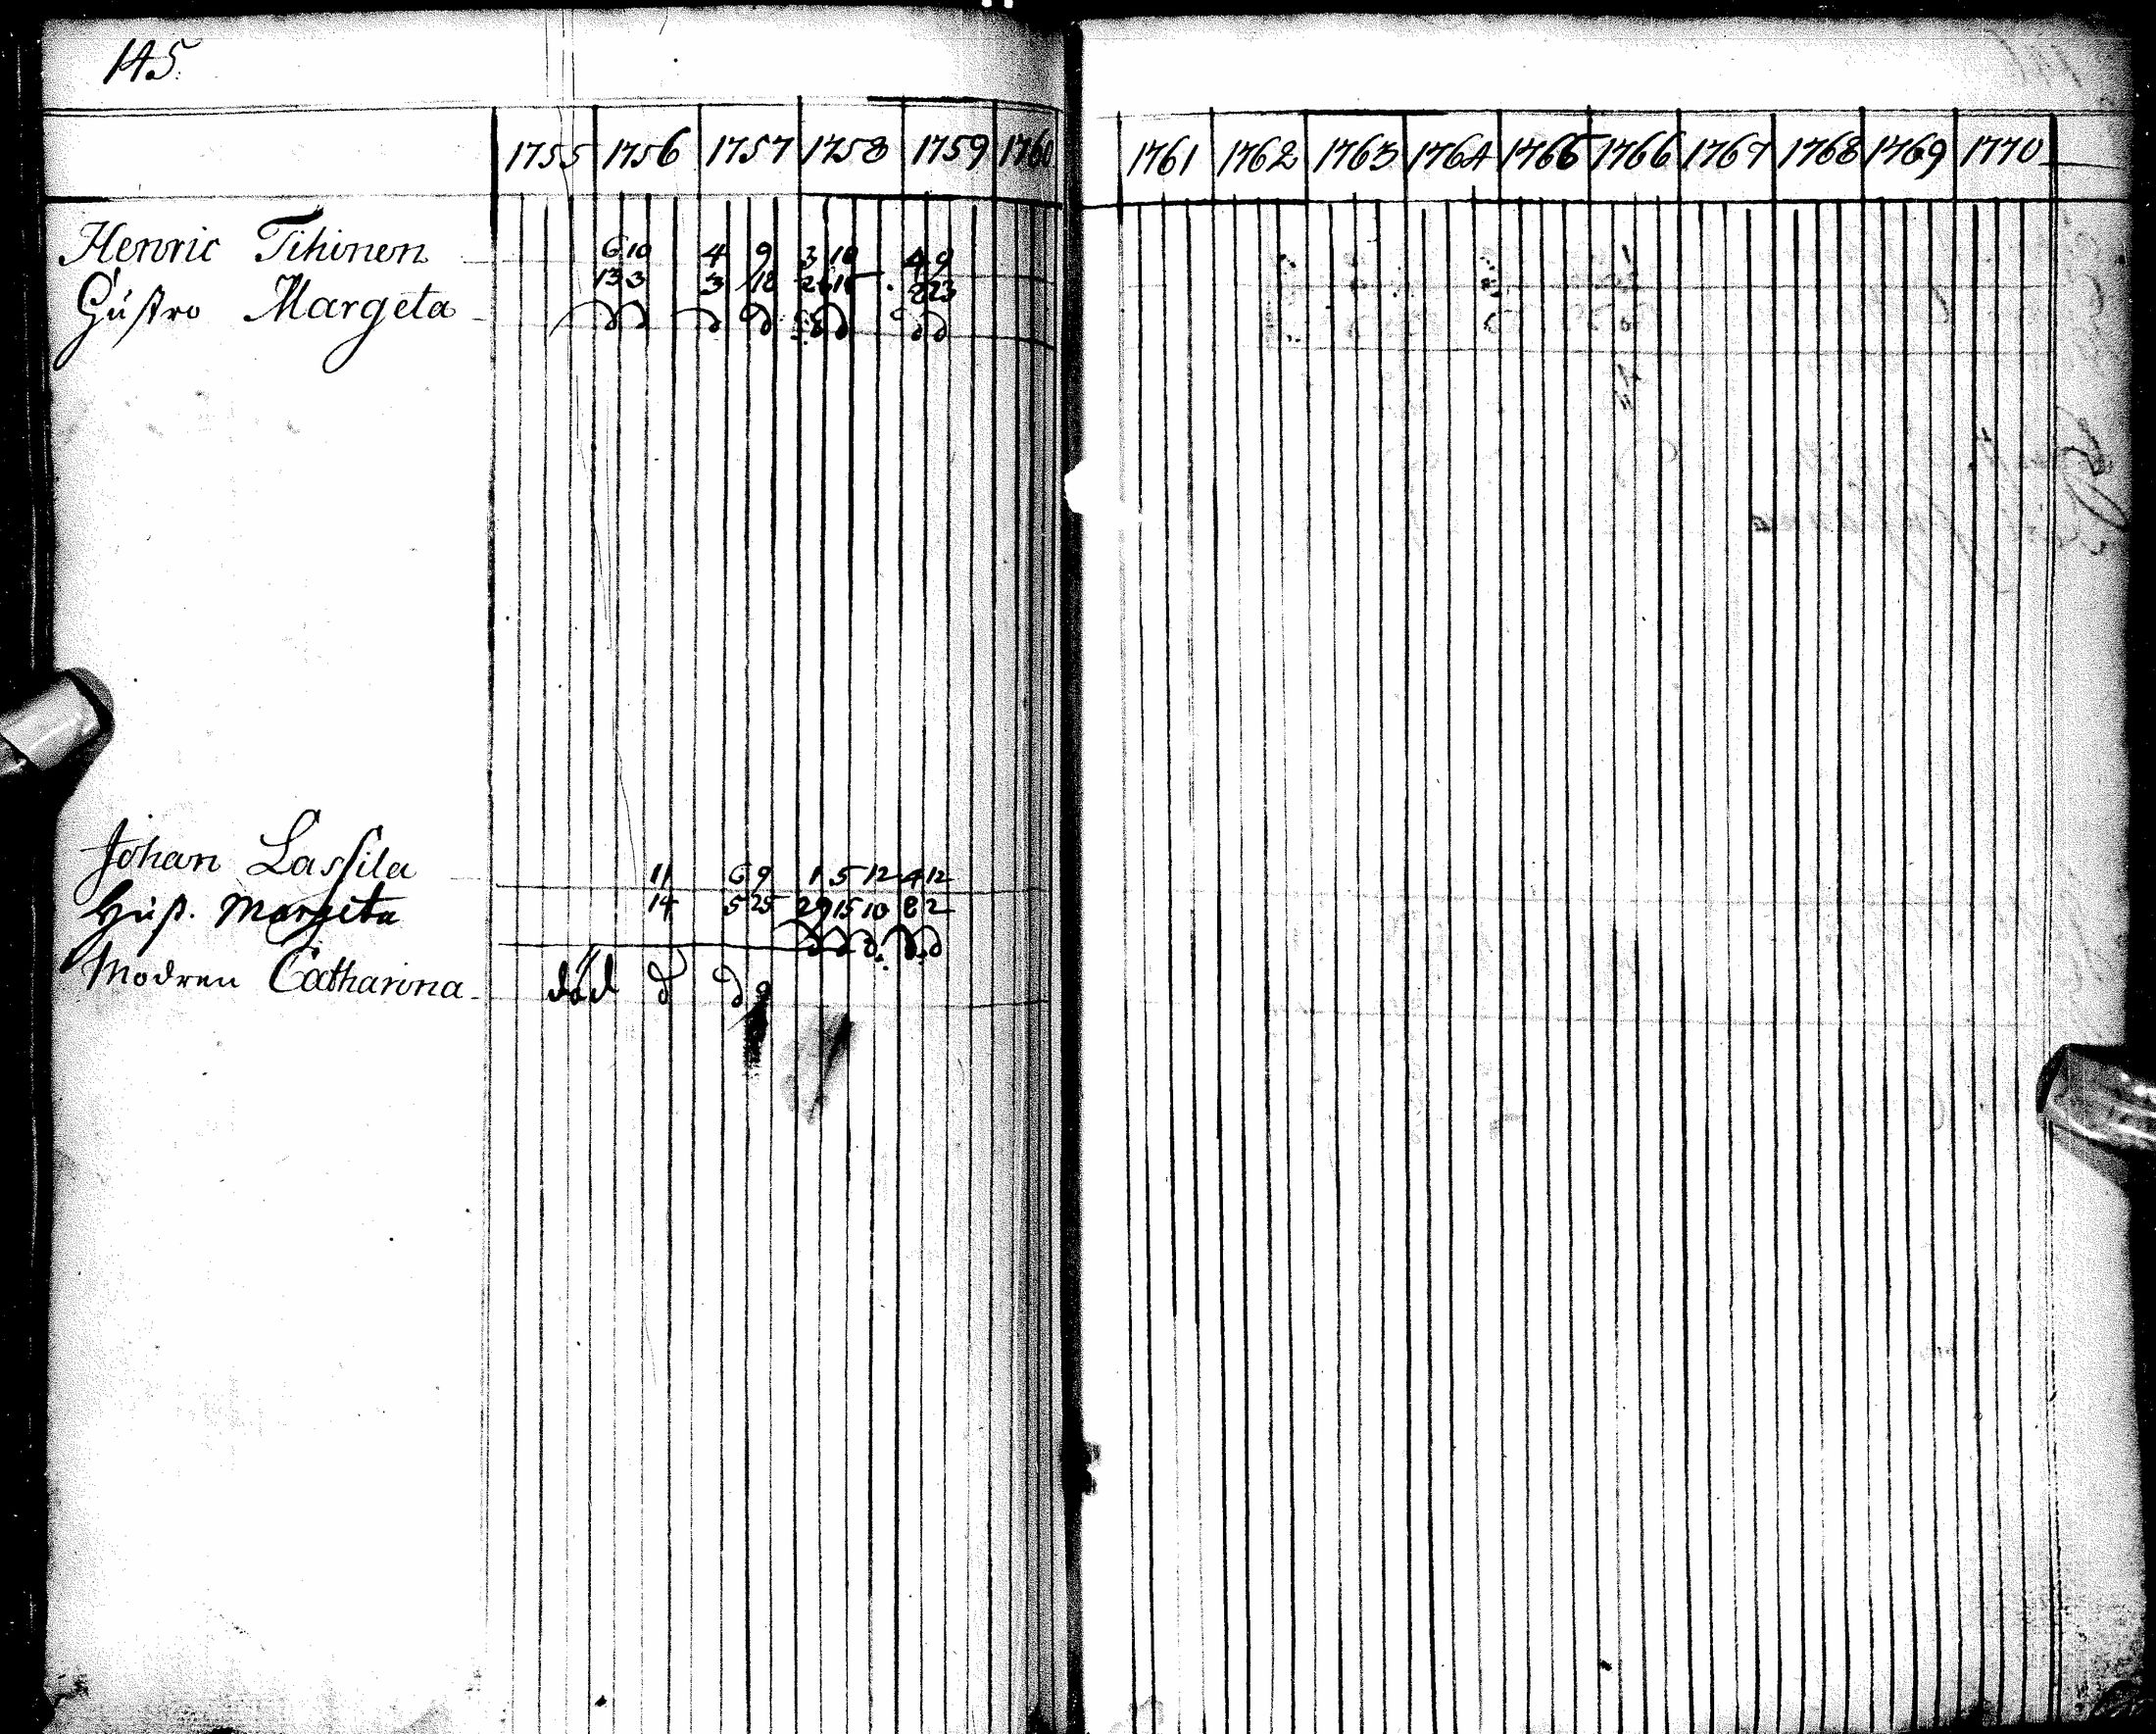 145.
1755 1756 1757 1758 1759 1760 1761 1762 1763 1764 1765 1766 1767 1768 1769 1770
Henric Tihinen 6 10 4 9 3 10 4 9
13 3 3 18 26 15 2 23
Hustro Margeta d d d d d d d d
Johan Lassila 11 6 9 1 5 12 4 12
14 5 25 29 15 10 8 2
Hust. Margeta d d d d d
Modren Catharina död d d